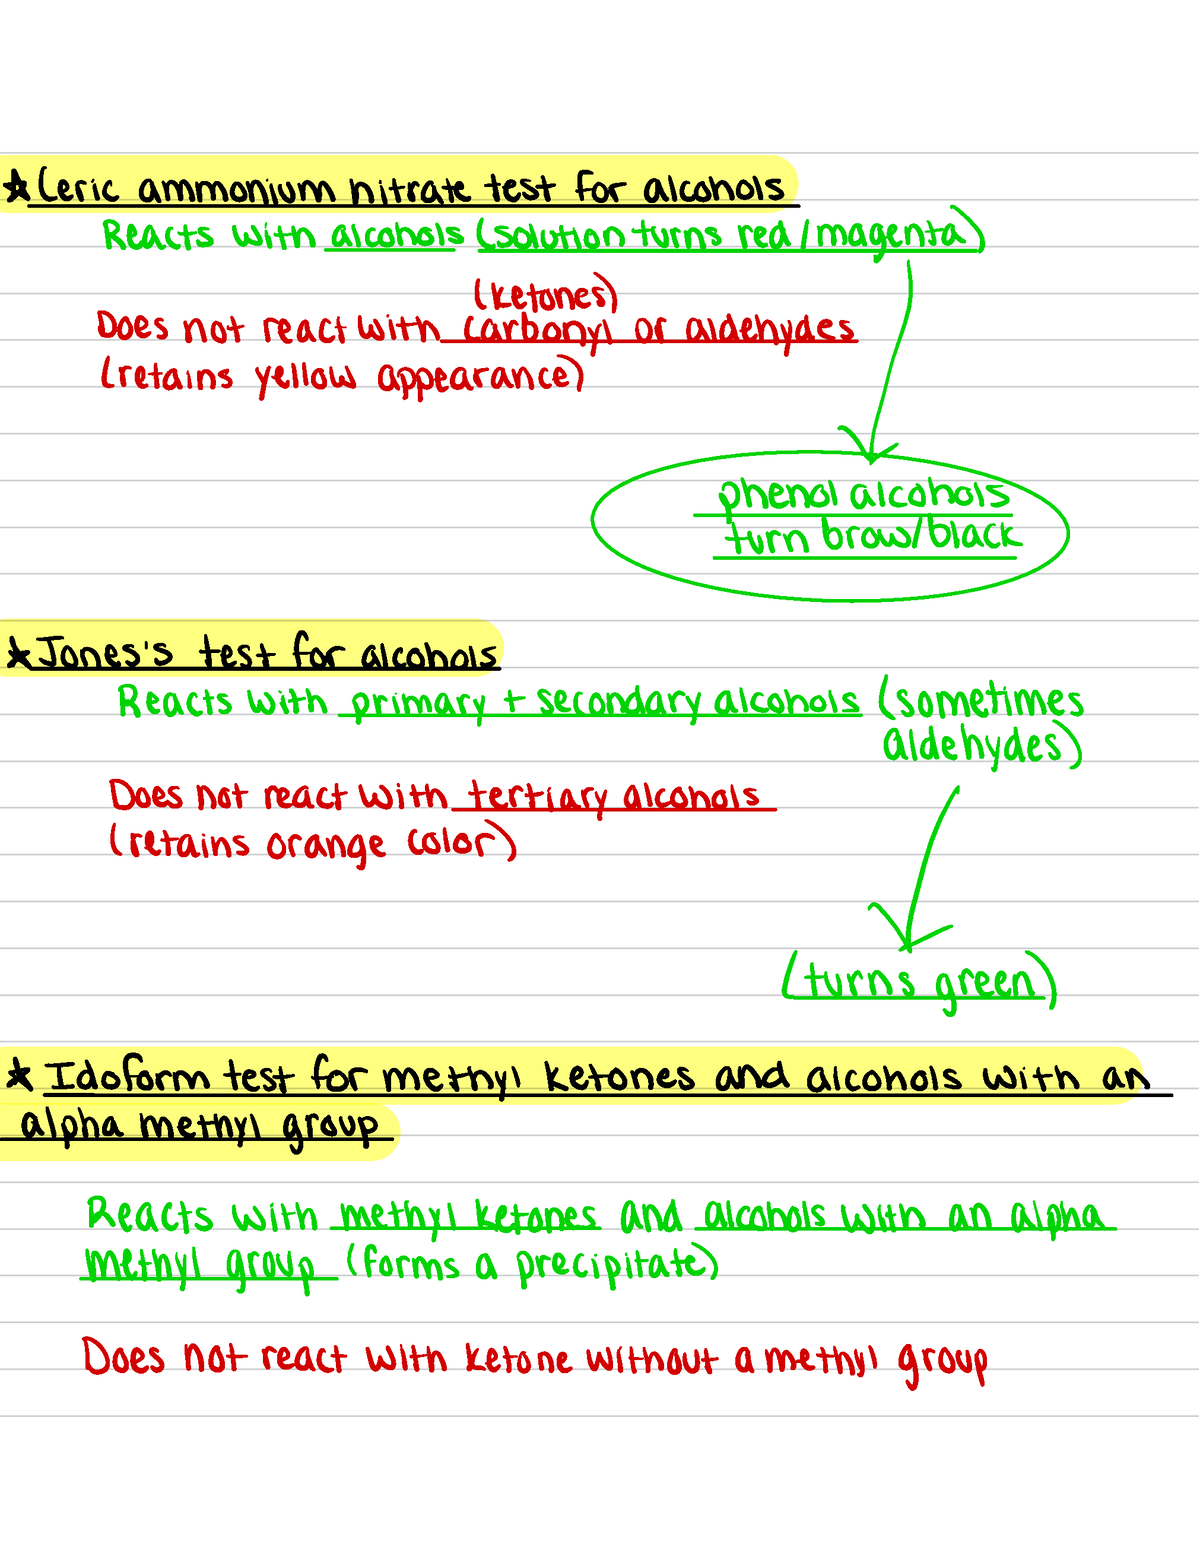 ★ Ceric ammonium nitrate test for alcohols
Reacts with alcohols (solution turns red/magenta)
(ketones)
Does not react with carbonyl or aldehydes
(retains yellow appearance)
phenol alcohols
turn brow/black
★ Jones's test for alcohols
Reacts with primary + secondary alcohols (sometimes
aldehydes)
Does not react with tertiary alcohols
(retains orange color)
(turns green)
★ Idoform test for methyl ketones and alcohols with an
alpha methyl group
Reacts with methyl ketones and alcohols with an alpha
methyl group (forms a precipitate)
Does not react with ketone without a methyl group